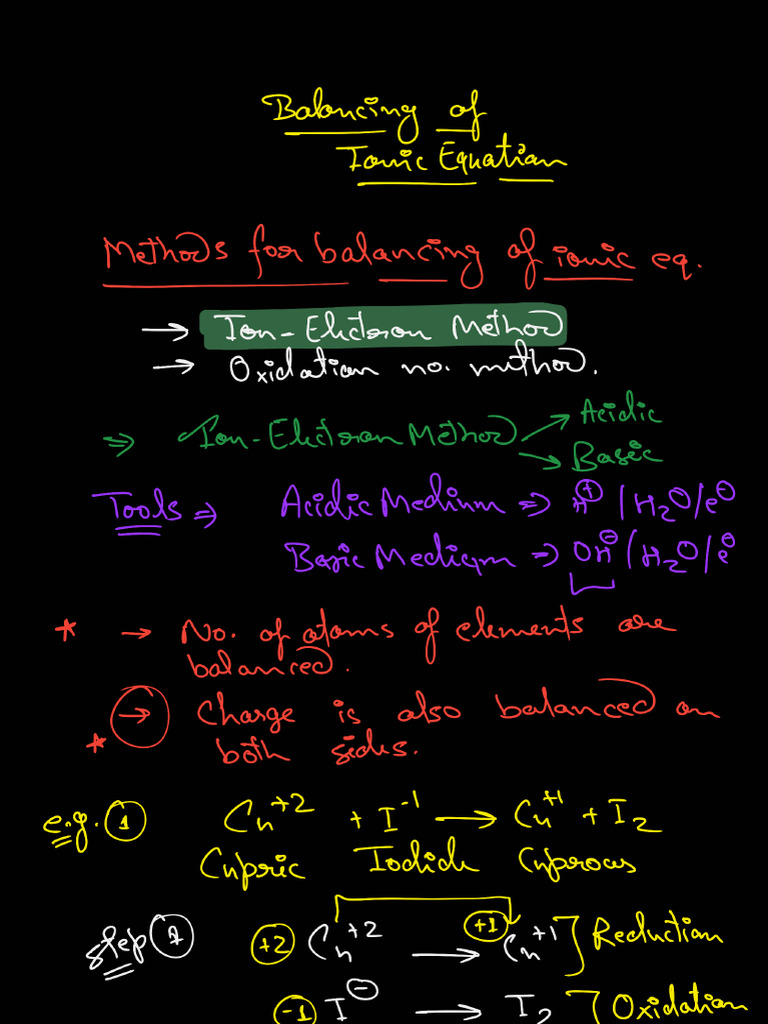 Balancing of
Ionic Equation
Methods for balancing of ionic eq.
→ Ion-Electron Method
→ Oxidation no. method.
⇒ Ion-Electron Method → Acidic
→ Basic
Tools ⇒ Acidic Medium ⇒ H⊕ / H₂O / e⊖
Basic Medium ⇒ OH⊖ / H₂O / e⊖
* → No. of atoms of elements are
balanced.
→ Charge is also balanced on
* both sides.
e.g. ① Cu⁺² + I⁻¹ → Cu⁺¹ + I₂
Cupric Iodide Cuprous
step ① +2 Cu⁺² → +1 Cu⁺¹ ] Reduction
-1 I⊖ → I₂ ] Oxidation